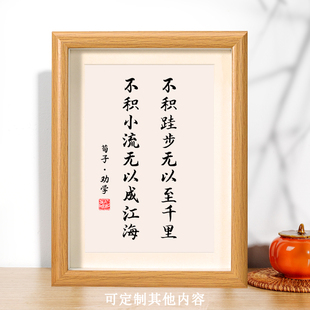 不积跬步无以至千里
不积小流无以成江海
荀子·劝学
可定制其他内容